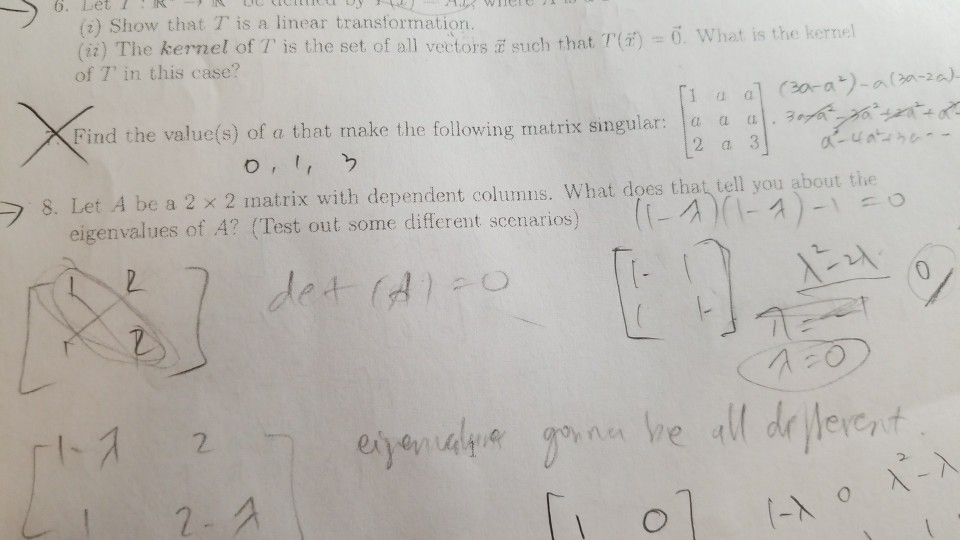 6. Let T :
(i) Show that T is a linear transformation.
(ii) The kernel of T is the set of all vectors x⃗ such that T(x⃗) = 0⃗. What is the kernel
of T in this case?
Find the value(s) of a that make the following matrix singular:
[1 a a]
[a a a]
[2 a 3]
(3a-a²)-a(3a-2a)
0, 1, 3
8. Let A be a 2 × 2 matrix with dependent columns. What does that tell you about the
eigenvalues of A? (Test out some different scenarios)
(1-λ)(1-λ)-1 = 0
1 2
2
det(A) = 0
[1- 1]
[1 1-]
λ²-2λ
0
λ=0
1-λ 2
1 2-λ
gonna be all different.
[1 0]
1-λ 0
λ²-λ